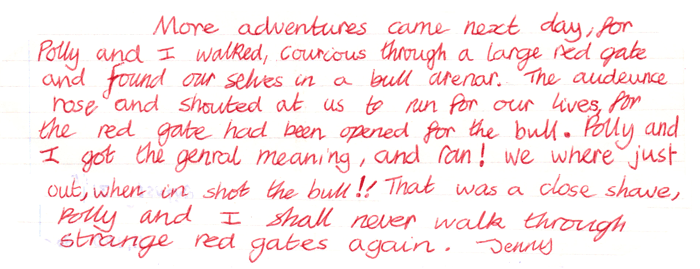 More adventures came next day, for
Polly and I walked, courious through a large red gate
and found our selves in a bull arenar. The audeunce
rose and shouted at us to run for our lives, for
the red gate had been opened for the bull. Polly and
I got the genral meaning, and ran! we where just
out, when in shot the bull!! That was a close shave,
Polly and I shall never walk through
strange red gates again. Jenny